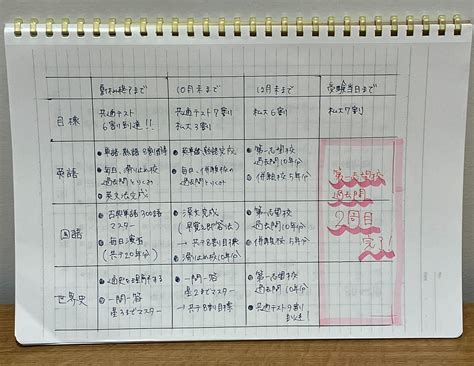 夏休み終了まで 10月末まで 12月末まで 受験当日まで
目標
共通テスト
6割到達!!
共通テスト7割
私大3割
私大6割
私大7割
英語
単語、熟語8割習得
毎日、滑り止め校
過去問とりくみ
英文法完成
単語、熟語完成
毎日、併願校の
過去問とりくみ
第一志望校
過去問10年分
併願校5年分
国語
古典単語300語
マスター
毎日演習
(共テ20年分)
漢文完成
(早覚え即答法)
→共テ8割目標
滑り止め校10年分
第一志望校
過去問10年分
併願校5年分
世界史
通史を1周終わる
一問一答
星3までマスター
一問一答
星2までマスター
→共テ8割目標
第一志望校
過去問10年分
共通テスト9割
到達!
第一志望校
過去問
2周目
完了!